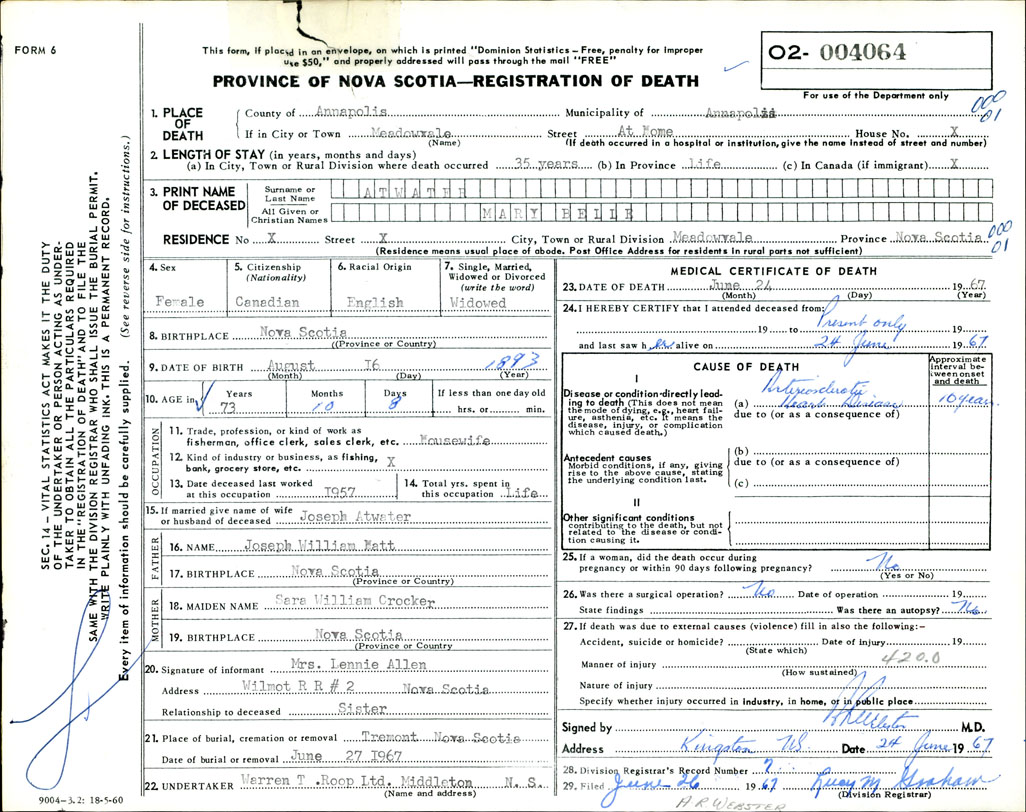 FORM 6
This form, if placed in an envelope, on which is printed "Dominion Statistics – Free, penalty for improper
use $50," and properly addressed will pass through the mail "FREE"
PROVINCE OF NOVA SCOTIA—REGISTRATION OF DEATH
O2- 004064
For use of the Department only
000
01
1. PLACE OF DEATH
County of Annapolis Municipality of Annapolis
If in City or Town Meadowvale Street At Home House No. X
(Name) (If death occurred in a hospital or institution, give the name instead of street and number)
2. LENGTH OF STAY (in years, months and days)
(a) In City, Town or Rural Division where death occurred 35 years (b) In Province life (c) In Canada (if immigrant) X
3. PRINT NAME OF DECEASED
Surname or Last Name ATWATER
All Given or Christian Names MARY BELLE
RESIDENCE No X Street X City, Town or Rural Division Meadowvale Province Nova Scotia
000
01
(Residence means usual place of abode. Post Office Address for residents in rural parts not sufficient)
4. Sex
Female
5. Citizenship
(Nationality)
Canadian
6. Racial Origin
English
7. Single, Married,
Widowed or Divorced
(write the word)
Widowed
8. BIRTHPLACE Nova Scotia
((Province or Country)
9. DATE OF BIRTH August I6 1893
(Month) (Day) (Year)
10. AGE in
Years Months Days If less than one day old
73 10 8 hrs. or min.
OCCUPATION
11. Trade, profession, or kind of work as
fisherman, office clerk, sales clerk, etc. Housewife
12. Kind of industry or business, as fishing,
bank, grocery store, etc. X
13. Date deceased last worked
at this occupation I957
14. Total yrs. spent in
this occupation Life
15. If married give name of wife
or husband of deceased Joseph Atwater
FATHER
16. NAME Joseph William Hatt
17. BIRTHPLACE Nova Scotia
(Province or Country)
MOTHER
18. MAIDEN NAME Sara William Crocker
19. BIRTHPLACE Nova Scotia
(Province or Country
20. Signature of informant Mrs. Lennie Allen
Address Wilmot R R # 2 Nova Scotia
Relationship to deceased Sister
21. Place of burial, cremation or removal Tremont Nova Scotia
Date of burial or removal June 27 I967
22. UNDERTAKER Warren T .Roop Ltd. Middleton N. S.
(Name and address)
9004-3.2: 18-5-60
MEDICAL CERTIFICATE OF DEATH
23. DATE OF DEATH June 24 19 67
(Month) (Day) (Year)
24. I HEREBY CERTIFY that I attended deceased from:
19 to Present only 19
and last saw her alive on 24 June 19 67
CAUSE OF DEATH
Approximate
interval be-
tween onset
and death
I
Disease or condition directly lead-
ing to death (This does not mean
the mode of dying, e.g., heart fail-
ure, asthenia, etc. It means the
disease, injury, or complication
which caused death.)
(a) Arteriosclerotic
Heart Disease 10 years
due to (or as a consequence of)
Antecedent causes
Morbid conditions, if any, giving
rise to the above cause, stating
the underlying condition last.
(b)
due to (or as a consequence of)
(c)
II
Other significant conditions
contributing to the death, but not
related to the disease or condi-
tion causing it.
25. If a woman, did the death occur during
pregnancy or within 90 days following pregnancy? No
(Yes or No)
26. Was there a surgical operation? No Date of operation 19
State findings Was there an autopsy? No
27. If death was due to external causes (violence) fill in also the following:–
Accident, suicide or homicide? Date of injury 19
(State which)
420.0
Manner of injury
(How sustained)
Nature of injury
Specify whether injury occurred in industry, in home, or in public place
Signed by M.D.
Address Kingston NS Date 24 June 19 67
28. Division Registrar's Record Number 7
29. Filed June 26 19 67 Lucy M Graham
(Division Registrar)
H R WEBSTER
SEC. 14 – VITAL STATISTICS ACT MAKES IT THE DUTY
OF THE UNDERTAKER OR PERSON ACTING AS UNDER-
TAKER TO OBTAIN ALL THE PARTICULARS REQUIRED
IN THE "REGISTRATION OF DEATH" AND TO FILE THE
SAME WITH THE DIVISION REGISTRAR WHO SHALL ISSUE THE BURIAL PERMIT.
WRITE PLAINLY WITH UNFADING INK. THIS IS A PERMANENT RECORD.
Every item of information should be carefully supplied. (See reverse side for instructions.)